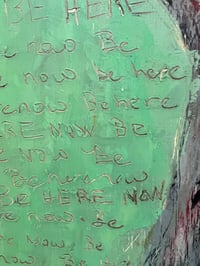 BE HERE
now Be
now be here
now Be here
RE NOW BE
now Be
Be here now
BE HERE NOW
re now. Be
re now. Be
now. Be